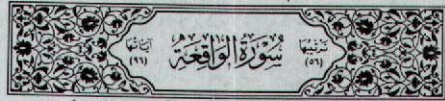 ترتيبها
(٥٦)
سُورَةُ الْوَاقِعَةِ
آياتها
(٩٦)